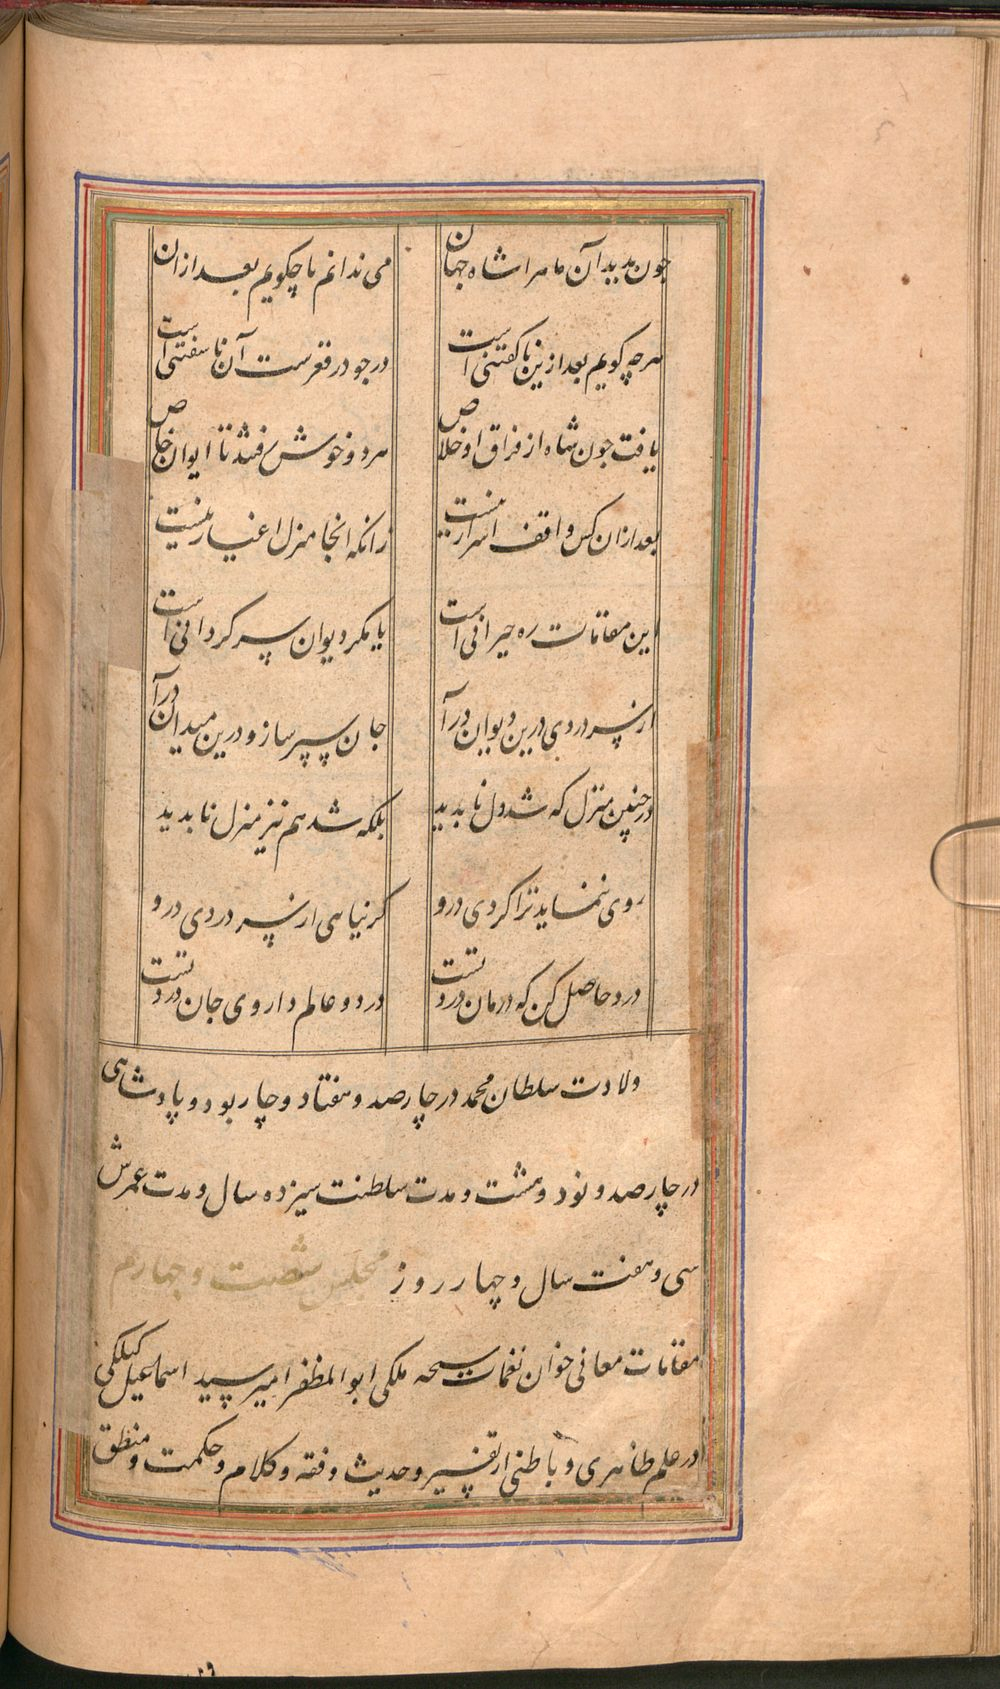 چون بدید آن ماه را شاه جهان می ندانم تا چکویم بعد ازان
هرچه کویم بعد ازین ناکفتنی است در جو در قعرست آن ناسفتنی است
یافت چون شاه از فراق او خلاص هر دو خوش رفتند تا ایوان خاص
بعد ازان کس واقف اسرار نیست زانکه انجا منزل اغیار نیست
این مقامات ره حیرانی است یا مکر دیوان سرکردانی است
از سر دردی درین دیوان درآ جان سپر ساز و درین میدان درآ
در چنین منزل که شد دل نابدید بلکه شد هم نیز منزل نابدید
روی ننماید ترا کردی درو کر نیاهی از سر دردی درو
درد حاصل کن که درمان درد تست در دو عالم داروی جان درد تست
ولادت سلطان محمد در چارصد و هفتاد و چار بود و پادشاهی
در چارصد و نود و هشت و مدت سلطنت سیزده سال و مدت عمرش
سی و هفت سال و چهار روز مجلس شصت و چهارم
مقامات معانی خوان نغمات سبحه ملکی ابوالمظفر امیر سید اسماعیل کیلکی
در علم ظاهری و باطنی از تفسیر و حدیث و فقه و کلام و حکمت و منطق